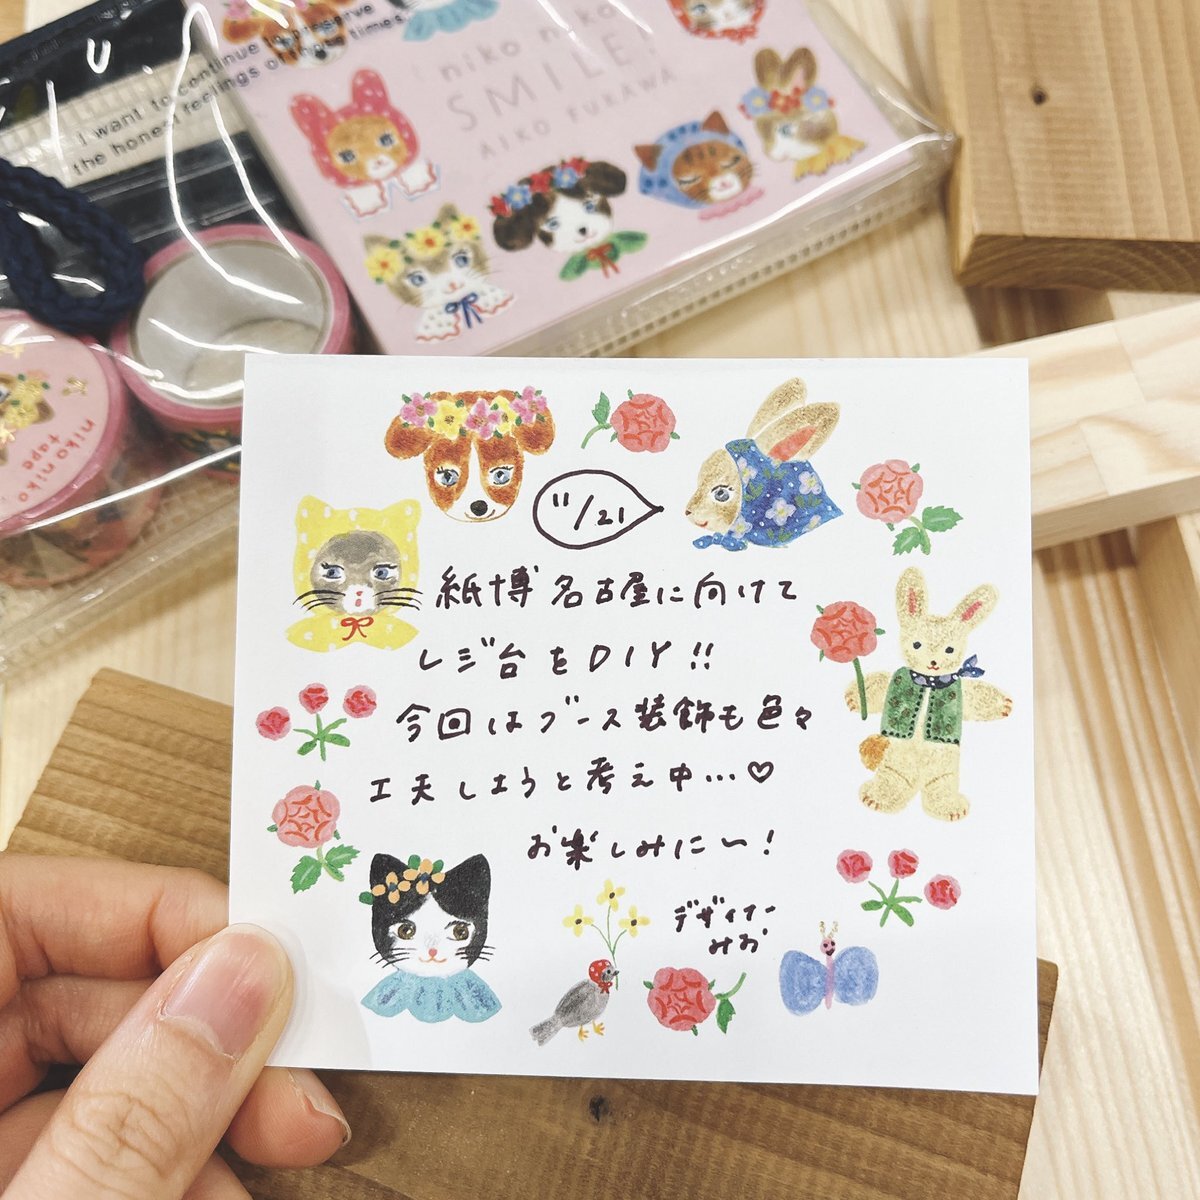 I want to continue to preserve
the honest feelings of those times.
niko niko
SMILE!
AIKO FUKAWA
niko niko
tape
11/21
紙博 名古屋に向けて
レジ台をDIY!!
今回はブース装飾も色々
工夫しようと考え中…♡
お楽しみに〜!
デザイナー
みお